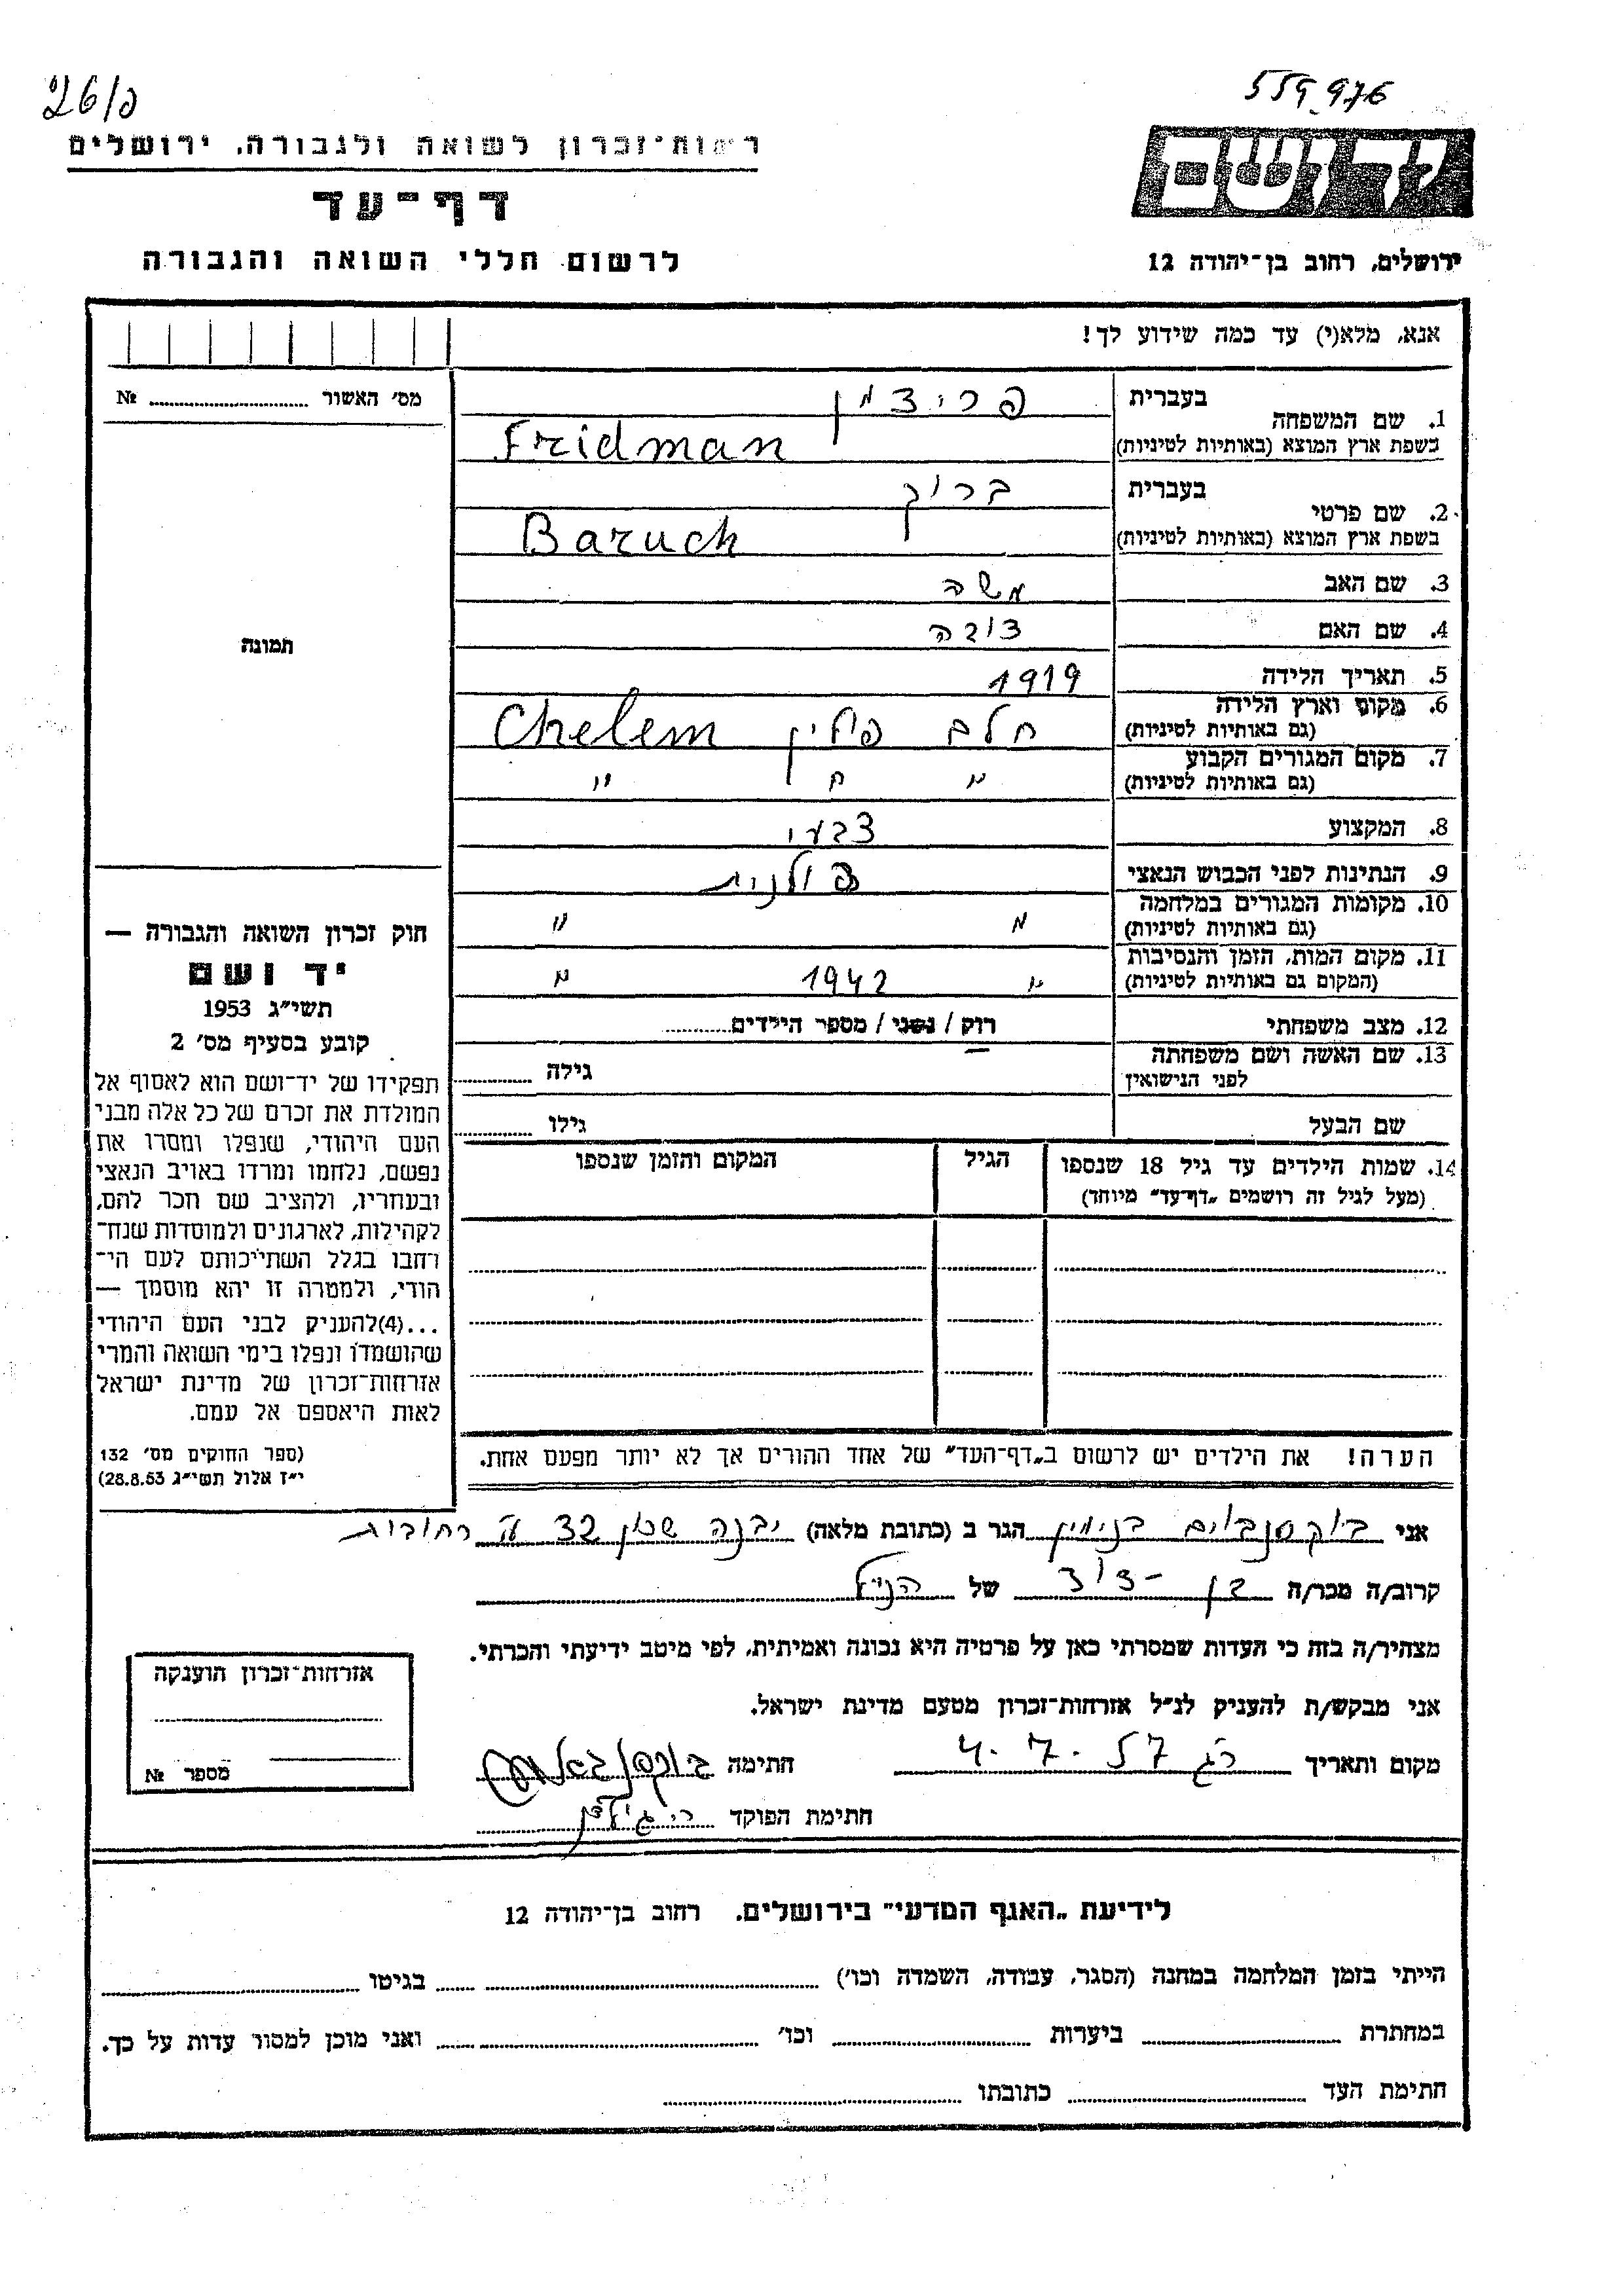 26/פ
559976
רשות־זכרון לשואה ולגבורה, ירושלים
דף־עד
לרשום חללי השואה והגבורה
יד ושם
ירושלים, רחוב בן־יהודה 12
אנא, מלא(י) עד כמה שידוע לך!
מס׳ האשור № ..........
1. שם המשפחה בעברית פרידמן
בשפת ארץ המוצא (באותיות לטיניות) Fridman
2. שם פרטי בעברית ברוך
בשפת ארץ המוצא (באותיות לטיניות) Baruch
3. שם האב משה
4. שם האם
תמונה
5. תאריך הלידה 1919
6. מקום וארץ הלידה (גם באותיות לטיניות) חלם פולין Chelem
7. מקום המגורים הקבוע (גם באותיות לטיניות) " " "
8. המקצוע צבעי
9. הנתינות לפני הכבוש הנאצי פולנית
10. מקומות המגורים במלחמה (גם באותיות לטיניות) " "
11. מקום המות, הזמן והנסיבות (המקום גם באותיות לטיניות) " 1942 "
12. מצב משפחתי רוק / נשוי / מספר הילדים..........
13. שם האשה ושם משפחתה לפני הנישואין גילה ..........
שם הבעל גילו ..........
14. שמות הילדים עד גיל 18 שנספו הגיל המקום והזמן שנספו
(מעל לגיל זה רושמים „דף־עד״ מיוחד)
הערה! את הילדים יש לרשום ב„דף־העד״ של אחד ההורים אך לא יותר מפעם אחת.
חוק זכרון השואה והגבורה —
יד ושם
תשי״ג 1953
קובע בסעיף מס׳ 2
תפקידו של יד־ושם הוא לאסוף אל
המולדת את זכרם של כל אלה מבני
העם היהודי, שנפלו ומסרו את
נפשם, נלחמו ומרדו באויב הנאצי
ובעוזריו, ולהציב שם וזכר להם,
לקהילות, לארגונים ולמוסדות שנח־
רחבו בגלל השתייכותם לעם הי־
הודי, ולמטרה זו יהא מוסמך —
...(4)להעניק לבני העם היהודי
שהושמדו ונפלו בימי השואה והמרי
אזרחות־זכרון של מדינת ישראל
לאות היאספם אל עמם.
(ספר החוקים מס׳ 132
י״ז אלול תשי״ג 28.8.53)
אני בוקסנבוים בנימין הגר ב (כתובת מלאה) יבנה שכון 32 רחובות
קרוב/ה מכר/ה בן־דוד של הנ״ל
מצהיר/ה בזה כי העדות שמסרתי כאן על פרטיה היא נכונה ואמיתית, לפי מיטב ידיעתי והכרתי.
אני מבקש/ת להעניק לנ״ל אזרחות־זכרון מטעם מדינת ישראל.
מקום ותאריך 4.7.57 חתימה
חתימת הפוקד
אזרחות־זכרון הוענקה
מספר №
לידיעת „האגף המדעי״ בירושלים. רחוב בן־יהודה 12
הייתי בזמן המלחמה במחנה (הסגר, עבודה, השמדה וכו׳) .......... בגיטו ..........
במחתרת .......... ביערות .......... וכו׳ .......... ואני מוכן למסור עדות על כך.
חתימת העד .......... כתובתו ..........